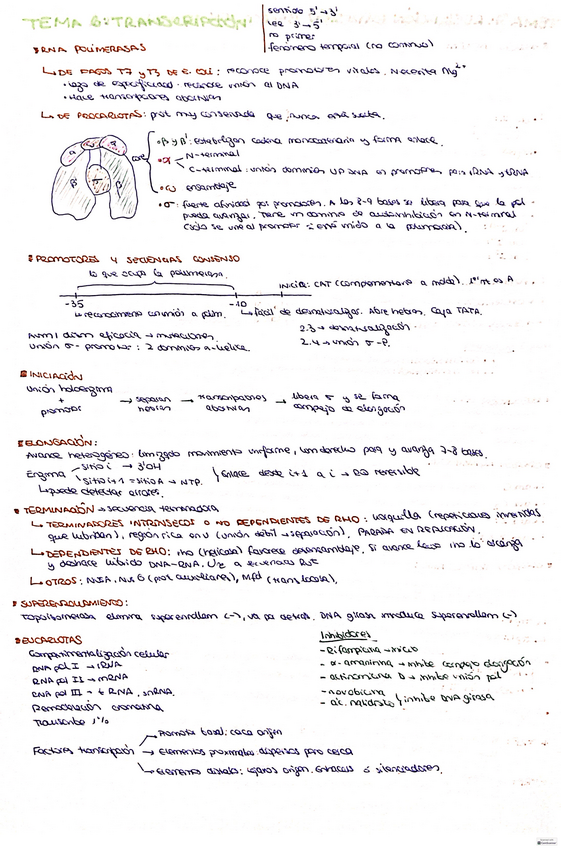 TEMA 6: TRANSCRIPCIÓN
sentido 5'→3'
lee 3'→5'
no primer
fenómeno temporal (no continuo)
RNA POLIMERASAS
↳ DE FAGOS T7 y T3 DE E. COLI: reconoce promotores virales. Necesita Mg²⁺
• Lazo de especificidad: reconoce unión al DNA
• Hace transcriptores abortivos
↳ DE PROCARIOTAS: prot muy conservada que nunca está suelta.
α α β' σ β
core
• β y β': estabilizan cadena monocatenaria y forma enlace.
• α N-terminal
C-terminal: unión dominios UP DNA en promotores para rRNA y tRNA
• ω ensamblaje
• σ: fuerte afinidad por promotores. A las 8-9 bases se libera para que la pol
pueda avanzar. Tiene un dominio de autoinhibición en N-terminal
(solo se une al promotor si está unido a la polimerasa).
PROMOTORES Y SECUENCIAS CONSENSO
lo que ocupa la polimerasa.
inicia: CAT (complementaria a molde). 1er nt es A
-35 -10
↳ reconocimiento unión a polim. ↳ fácil de desnaturalizar. Abre hebras. Caja TATA.
eficacia → mutaciones. 2.3 → desnaturalización
Unión σ- promotor: 2 dominios α-hélice. 2.4 → unión σ-P.
INICIACIÓN
Unión holoenzima
+
promotor → separan hebras → transcripciones abortivas → libera σ y se forma complejo de elongación
ELONGACIÓN:
Avance heterogéneo: limitado movimiento uniforme, van derecho para y avanza 7-8 bases.
Enzima sitio i → 3'OH
Sitio i+1 = sitio A → NTP. Enlace desde i+1 a i → RQ reversible
↳ puede detectar errores.
TERMINACIÓN → secuencia terminadora
↳ TERMINADORES INTRÍNSECOS O NO DEPENDIENTES DE RHO: horquilla (repeticiones invertidas
que hibridan), región rica en U (unión débil → separación), PARADA EN REPLICACIÓN.
↳ DEPENDIENTES DE RHO: rho (helicasa) favorece desensamblaje. Si avance lento rho lo alcanza
y deshace híbrido DNA-RNA. Une a secuencias RUT
↳ OTROS: NusA, Nus G (prot auxiliares), Mfd (translocasa).
SUPERENROLLAMIENTO:
Topoisomerasa elimina superenrollam (-), va por detrás. DNA girasa introduce superenrollam (-)
EUCARIOTAS
Compartimentalización celular
RNA pol I → rRNA
RNA pol II → mRNA
RNA pol III → tRNA, snRNA.
Remodelación cromatina
Transcribe 1%
Factores transcripción → Promotor basal: cerca origen
→ Elementos proximales: dispersos pero cerca
→ Elemento distales: lejanos origen. Enhancers o silenciadores.
Inhibidores
- Rifampicina → inicio
- α-amanitina → inhibe complejo elongación
- actinomicina D → inhibe unión pol
- novobiocina
- ác. nalidíxico } inhibe DNA girasa